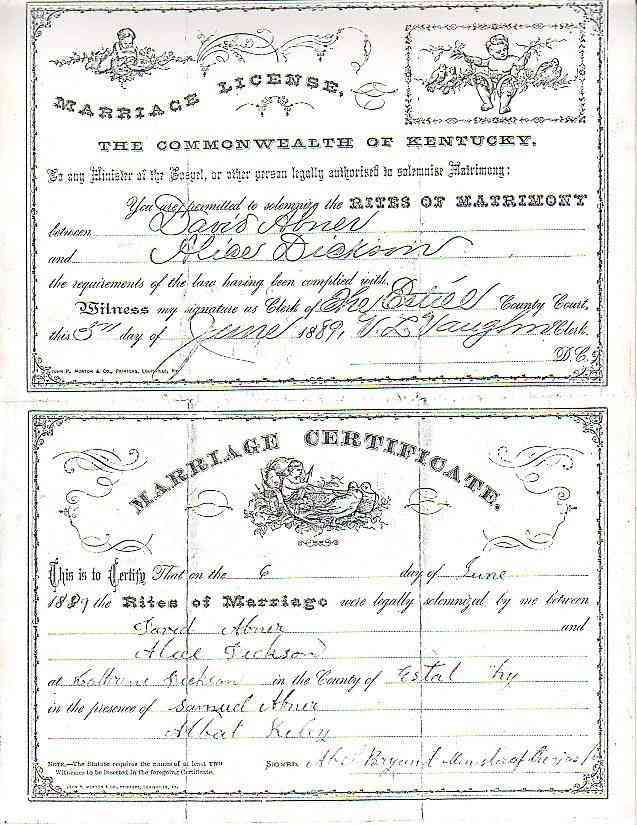 MARRIAGE LICENSE,
THE COMMONWEALTH OF KENTUCKY,
To any Minister of the Gospel, or other person legally authorised to solemnise Matrimony:
You are permitted to solemnize the RITES OF MATRIMONY
between David Abner
and Alice Dickson
the requirements of the law having been complied with.
Witness my signature as Clerk of the Estill County Court,
this 3rd day of June 1889, Vaughn Clerk.
D.C.
JOHN P. MORTON & CO., PRINTERS, LOUISVILLE, KY.
MARRIAGE CERTIFICATE.
This is to Certify That on the 6 day of June
1889 the Rites of Marriage were legally solemnized by me between
David Abner and
Alice Dickson
at Dickson in the County of Estal Ky
in the presence of Samuel Abner
Albert Kelly
NOTE.—The Statute requires the names of at least TWO
Witnesses to be inserted in the foregoing Certificate.
SIGNED, Bryant
JOHN P. MORTON & CO., PRINTERS, LOUISVILLE, KY.